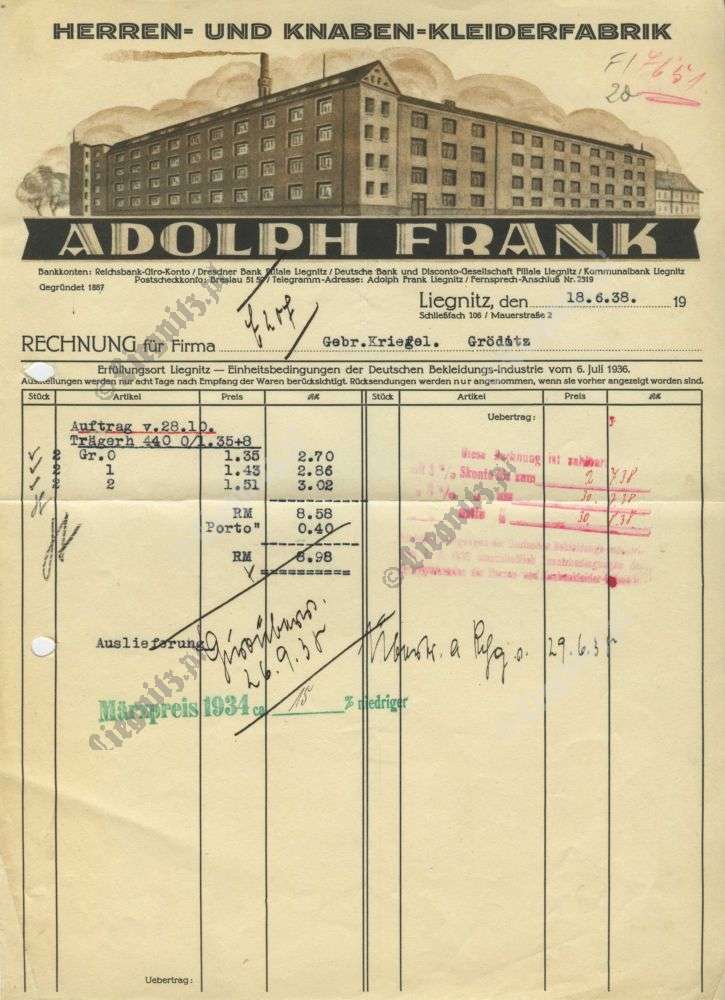 HERREN- UND KNABEN-KLEIDERFABRIK
F1 7651
20
ADOLPH FRANK
Bankkonten: Reichsbank-Giro-Konto / Dresdner Bank Filiale Liegnitz / Deutsche Bank und Disconto-Gesellschaft Filiale Liegnitz / Kommunalbank Liegnitz
Postscheckkonto: Breslau / Telegramm-Adresse: Adolph Frank Liegnitz / Fernsprech-Anschluß Nr. 2519
Gegründet 1887
Liegnitz, den 18.6.38. 19
Schließfach 106 / Mauerstraße 2
RECHNUNG für Firma Gebr.Kriegel. Gröditz
Erfüllungsort Liegnitz — Einheitsbedingungen der Deutschen Bekleidungs-Industrie vom 6. Juli 1936.
Ausstellungen werden nur acht Tage nach Empfang der Waren berücksichtigt. Rücksendungen werden nur angenommen, wenn sie vorher angezeigt worden sind.
Stück Artikel Preis RM Stück Artikel Preis RM
Uebertrag:
Auftrag v.28.10.
Trägerh 440 0/1.35+8
2 Gr.0 1.35 2.70
2 1 1.43 2.86
2 2 1.51 3.02
RM 8.58
Porto" 0.40
RM 8.98
Diese Rechnung ist zahlbar
Skonto zum 2 738
30.
30.
Auslieferung
26.9.38
29.6.38
Märzpreis 1934 ca. 15 % niedriger
Uebertrag:
© Liegnitz.pl
© Liegnitz.pl
© Liegnitz.pl